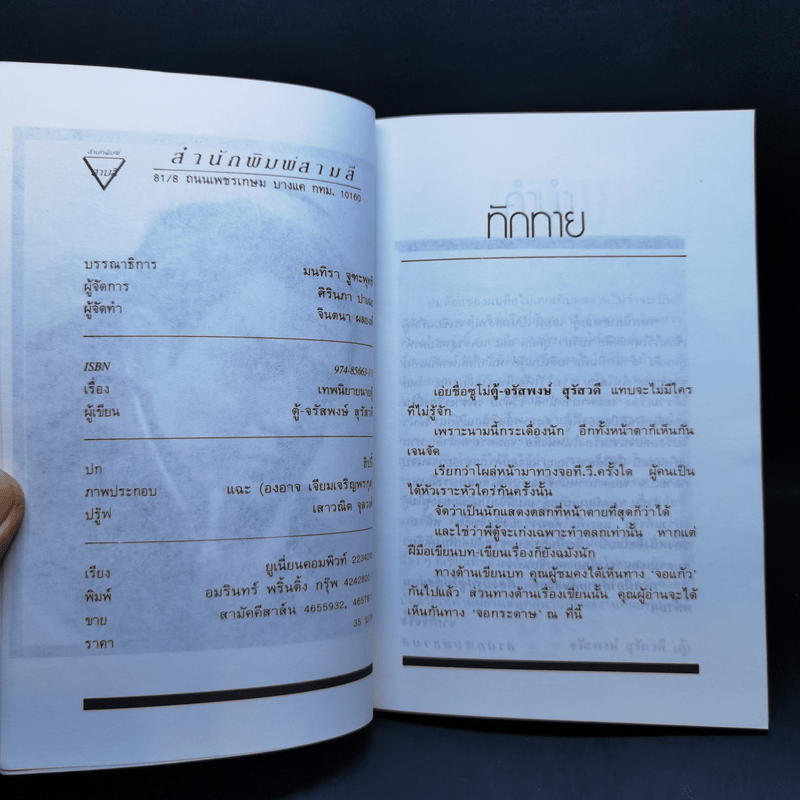 สำนักพิมพ์
สามสี
สำนักพิมพ์สามสี
81/8 ถนนเพชรเกษม บางแค กทม. 10160
บรรณาธิการ มนทิรา จูฑะพุทธิ
ผู้จัดการ ศิรินภา
ผู้จัดทำ จินตนา
ISBN 974-85663-1
เรื่อง เทพนิยายนายตู้
ผู้เขียน ตู้-จรัสพงษ์ สุรัสวดี
ปก
ภาพประกอบ แฉะ (องอาจ เจียมเจริญพรกุล
ปรู๊ฟ เสาวณิต
เรียง ยูเนี่ยนคอมพิวท์
พิมพ์ อมรินทร์ พริ้นติ้ง กรุ๊พ
ขาย สามัคคีสาส์น 4655932,
ราคา 35
ทักทาย
เอ่ยชื่อซูโม่ตู้-จรัสพงษ์ สุรัสวดี แทบจะไม่มีใคร
ที่ไม่รู้จัก
เพราะนามนี้กระเดื่องนัก อีกทั้งหน้าตาก็เห็นกัน
เจนจัด
เรียกว่าโผล่หน้ามาทางจอที.วี.ครั้งใด ผู้คนเป็น
ได้หัวเราะหัวใคร่กันครั้งนั้น
จัดว่าเป็นนักแสดงตลกที่หน้าตายที่สุดก็ว่าได้
และใช่ว่าพี่ตู้จะเก่งเฉพาะทำตลกเท่านั้น หากแต่
ฝีมือเขียนบท-เขียนเรื่องก็ยังฉมังนัก
ทางด้านเขียนบท คุณผู้ชมคงได้เห็นทาง 'จอแก้ว'
กันไปแล้ว ส่วนทางด้านเรื่องเขียนนั้น คุณผู้อ่านจะได้
เห็นกันทาง 'จอกระดาษ' ณ ที่นี้